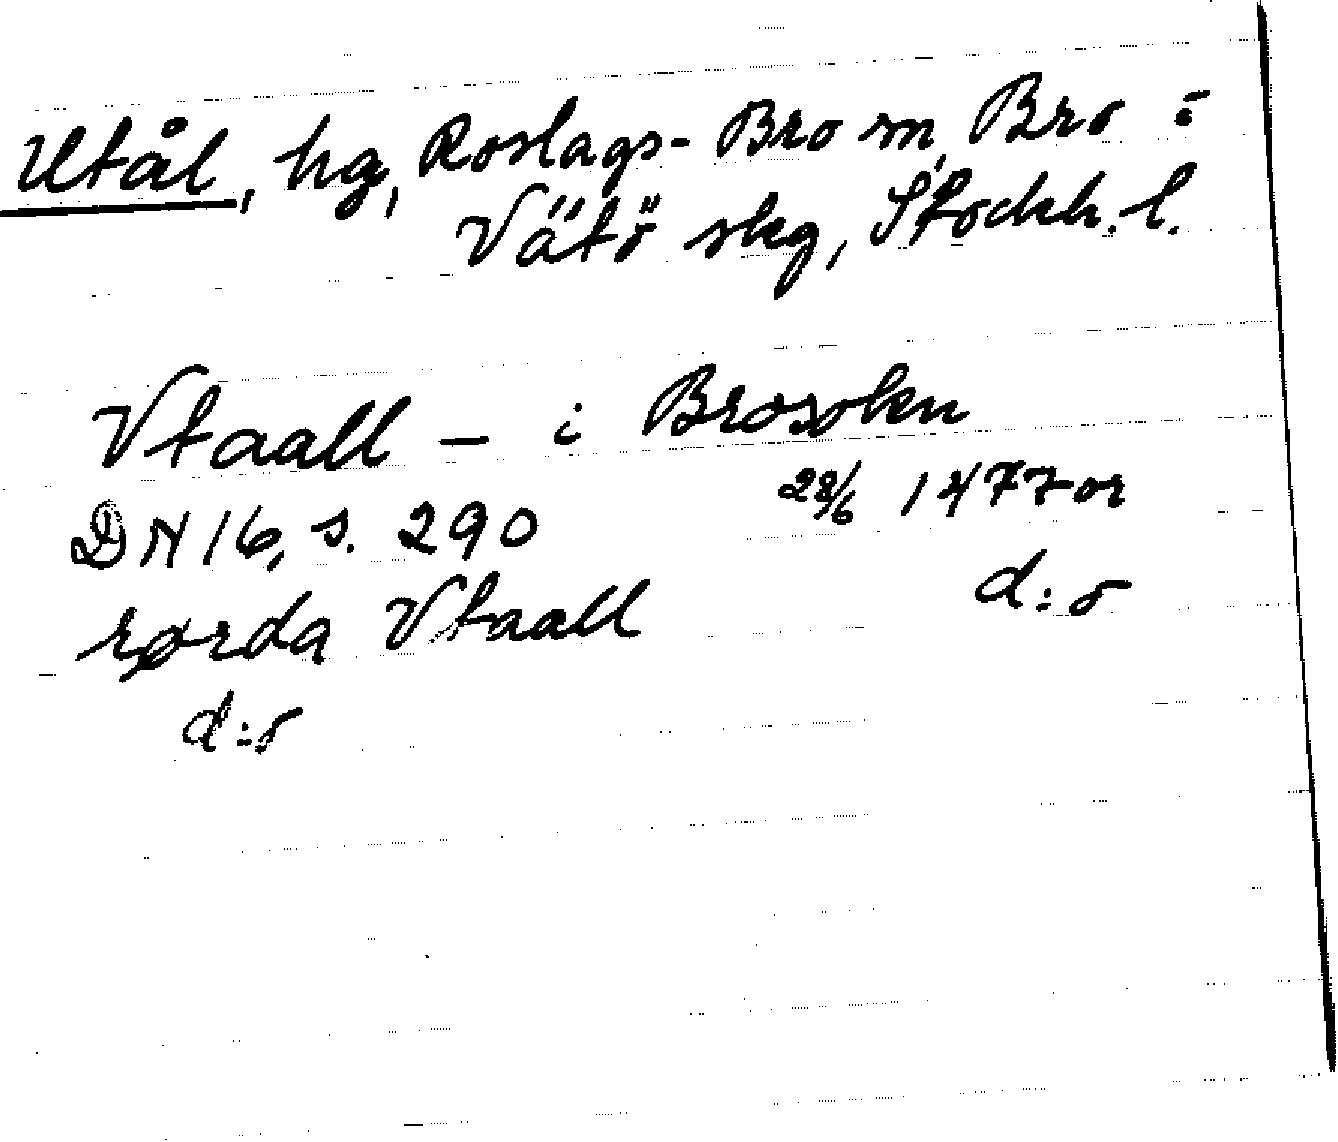 Utål, hg, Roslags-Bro sn, Bro o
Vätö skg, Stockh. l.
Vtaall — i Brosokn
DN 16, s. 290 28/6 1477 or
rørda Vtaall d:o
d:o